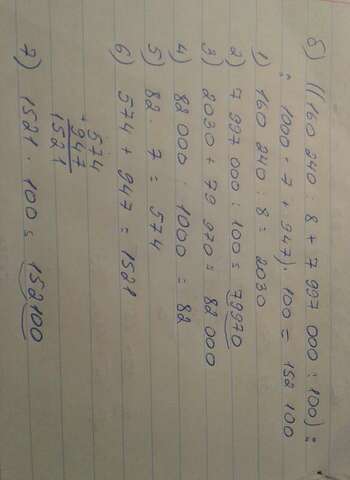 б) ((160 240 : 8 + 7 997 000 : 100) :
: 1000 · 7 + 947) · 100 = 152 100
1) 160 240 : 8 = 2030
2) 7 997 000 : 100 = 79970
3) 2030 + 79 970 = 82 000
4) 82 000 : 1000 = 82
5) 82 · 7 = 574
6) 574 + 947 = 1521
574
+ 947
1521
7) 1521 · 100 = 152100